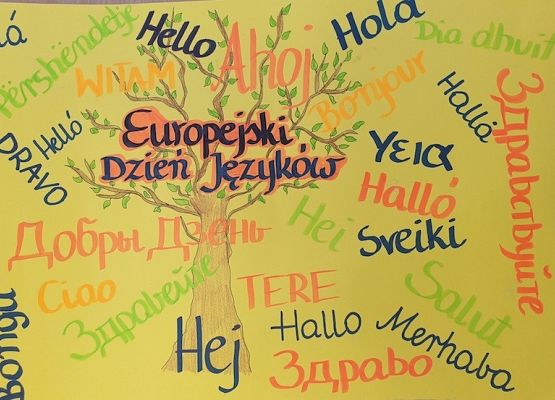 Përshëndetje
Hello
Ahoj
Hola
Dia dhuit
WITAM
Bonjour
Hallå
Здравствуйте
Helló
DRAVO
Europejski
Dzień Języków
γεια
Halló
Hei
Sveiki
Добры Дзень
Ciao
Здравейте
TERE
Salut
Bonġu
Hej
Hallo
Merhaba
Здраво